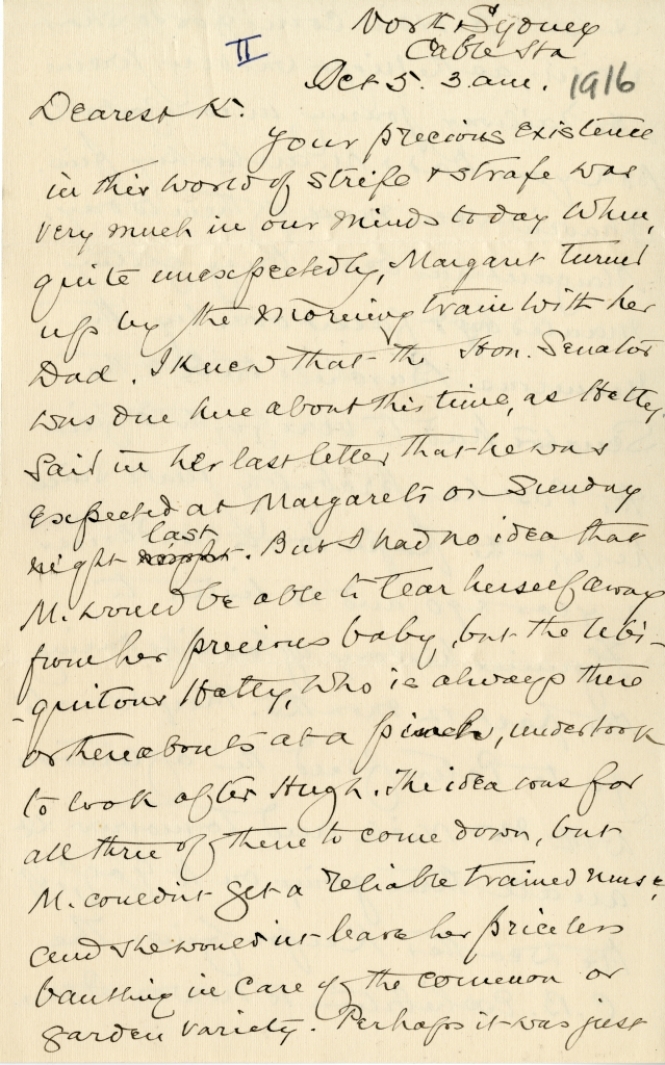 North Sydney
II
Cable Sta
Oct 5. 3 am. 1916
Dearest K.
Your precious existence
in this world of strife & strafe was
very much in our minds today when,
quite unexpectedly, Margaret turned
up by the morning train with her
Dad. I knew that the Hon. Senator
was due here about this time, as Hatty
said in her last letter that he was
expected at Margaret's on Sunday
night last night. But I had no idea that
M. would be able to tear herself away
from her precious baby, but the ubi-
-quitous Hatty, who is always there
or thereabouts at a pinch, undertook
to look after Hugh. The idea was for
all three of them to come down, but
M. couldn't get a reliable trained nurse,
and she wouldn't leave her priceless
bantling in care of the common or
garden variety. Perhaps it was just